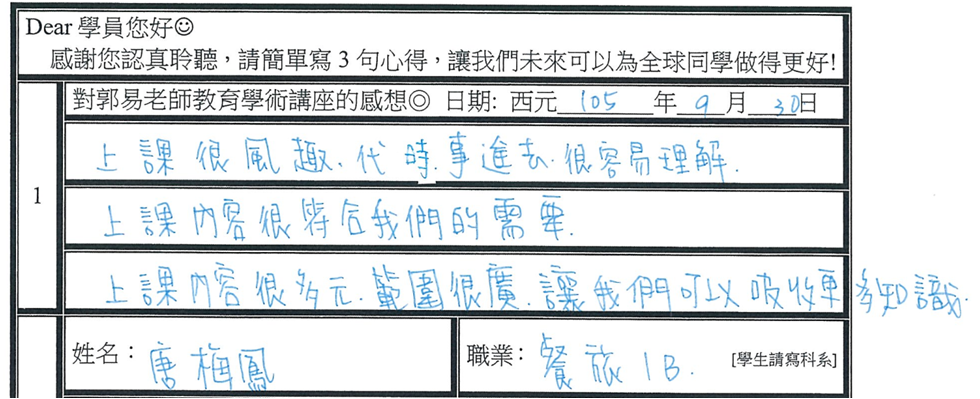 Dear 學員您好☺
感謝您認真聆聽，請簡單寫 3 句心得，讓我們未來可以為全球同學做得更好!
對郭易老師教育學術講座的感想◎ 日期: 西元 105 年 9 月 30 日
上課很風趣.代時.事進去.很容易理解.
1
上課內容很符合我們的需要.
上課內容很多元.範圍很廣.讓我們可以吸收更多知識.
姓名：唐梅鳳 職業：餐旅1B. [學生請寫科系]